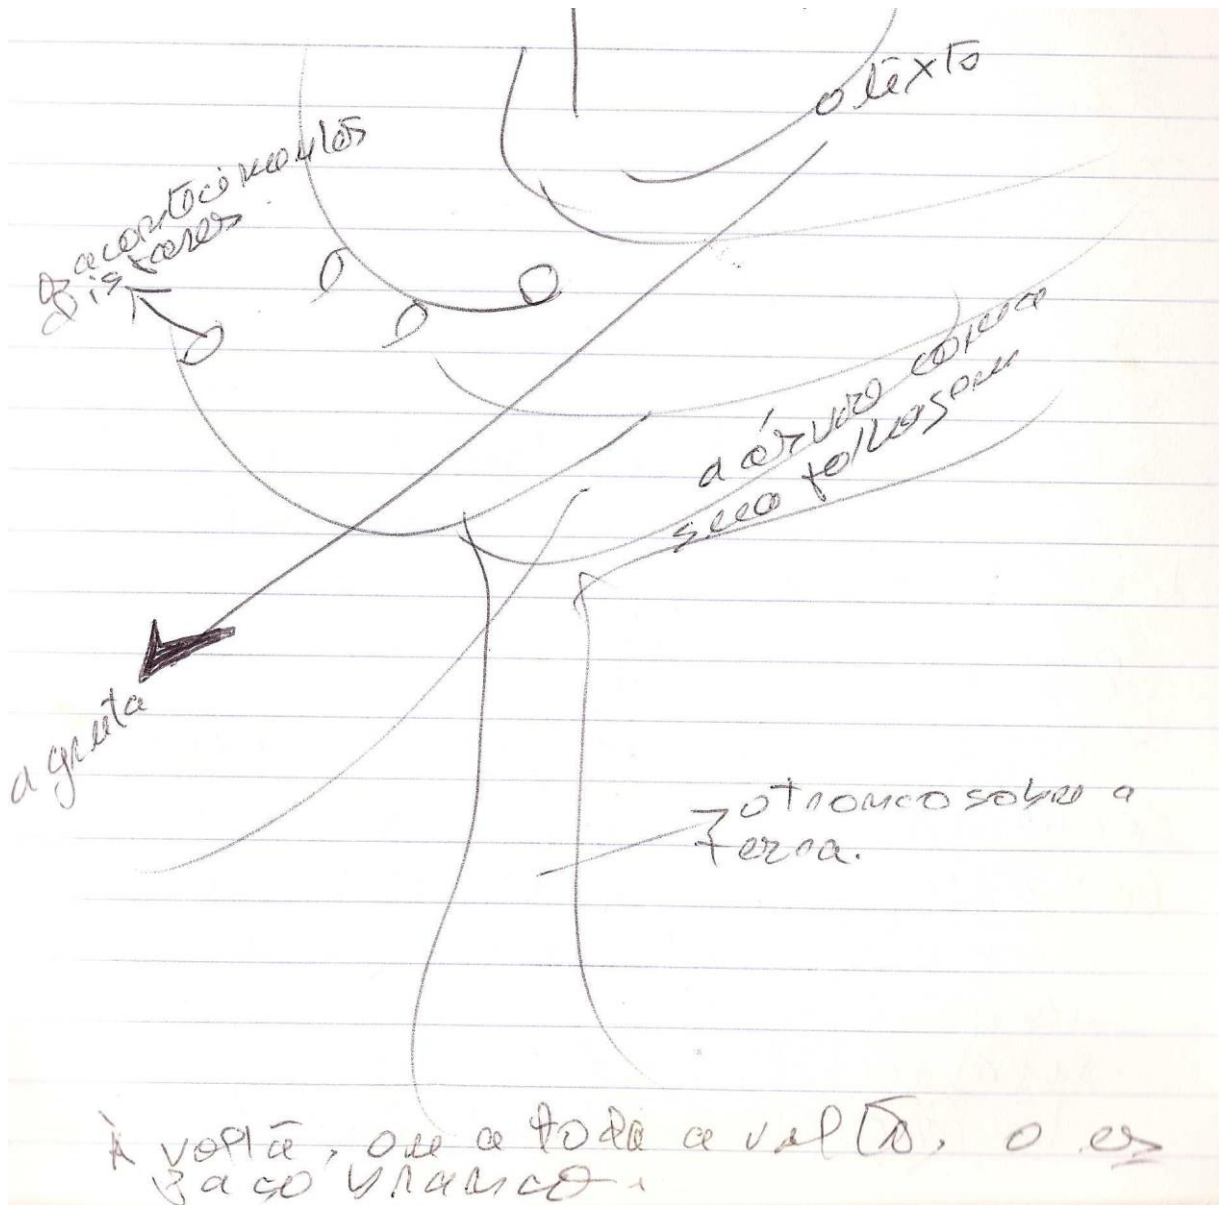 o texto
os acontecimentos
díspares
a árvore com a
sua folhagem
a gruta
o tronco sobre a
terra.
À volta, ou a toda a volta, o es
paço branco.